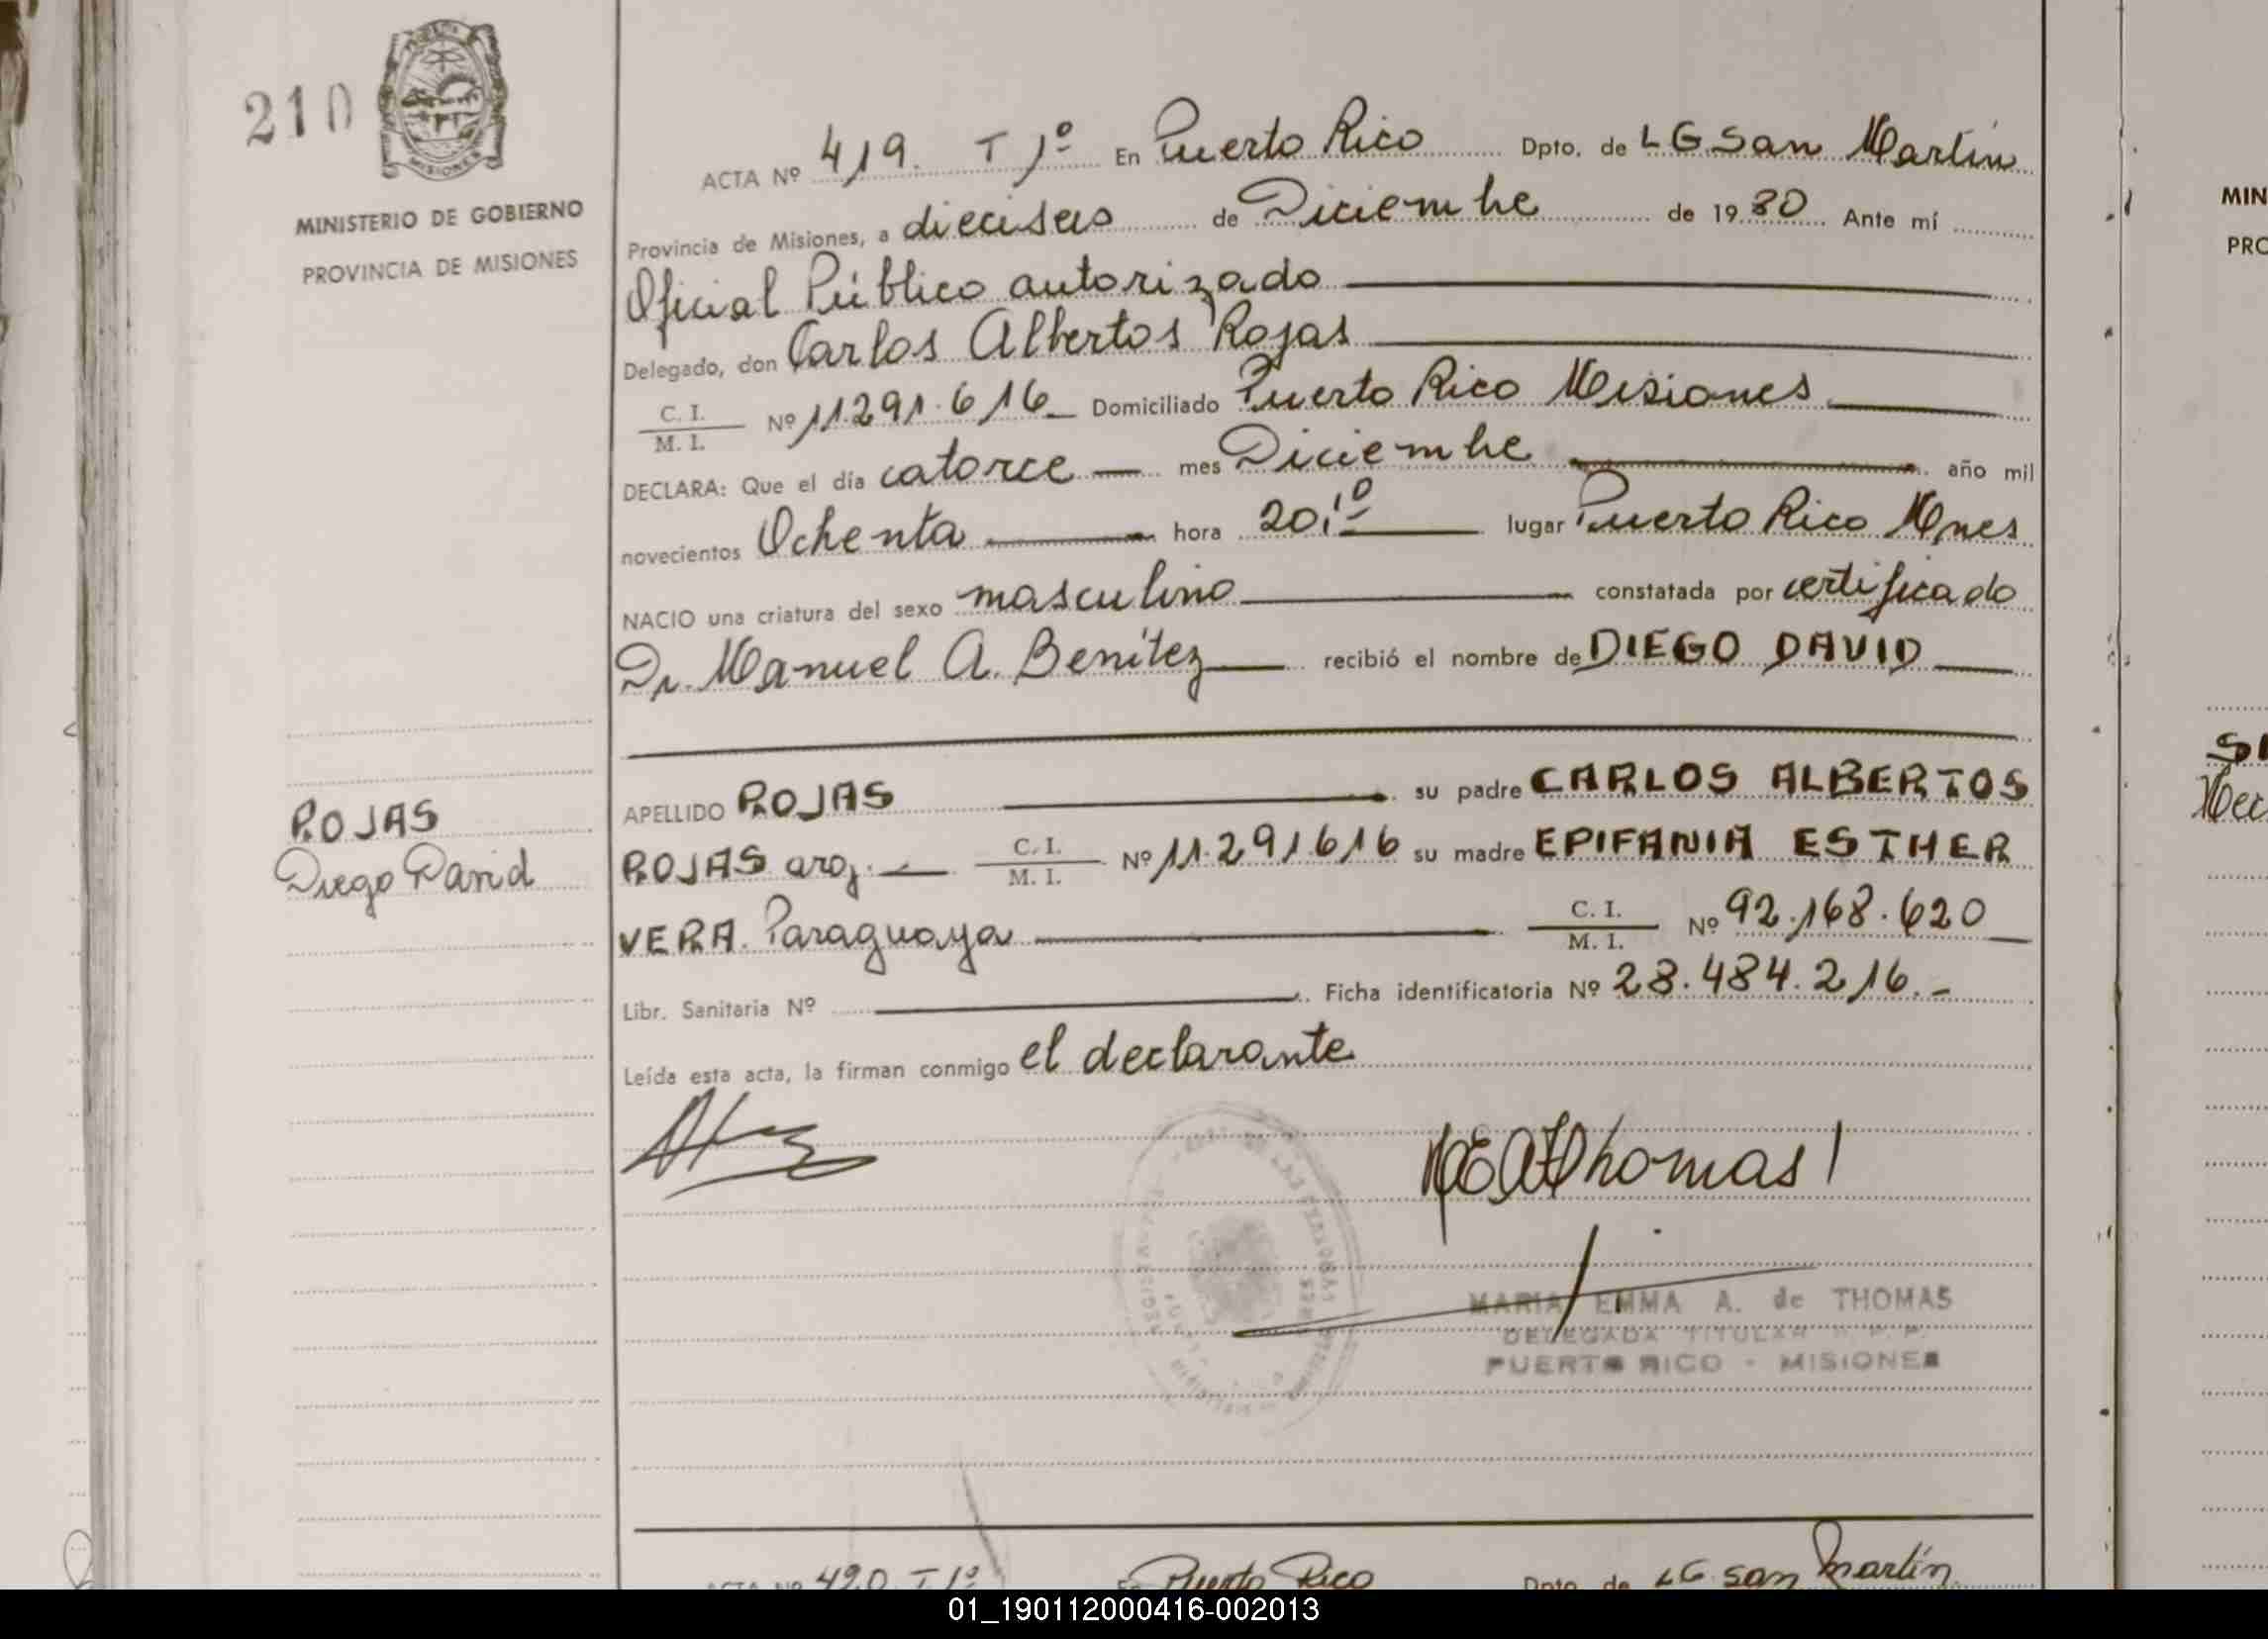 210
MISIONES
MINISTERIO DE GOBIERNO
PROVINCIA DE MISIONES
ACTA Nº 419. T 1º En Puerto Rico Dpto. de LG San Martín
Provincia de Misiones, a dieciseis de Diciembre de 1980 Ante mí
Oficial Público autorizado
Delegado, don Carlos Albertos Rojas
C. I. / M. I. Nº 11.291.616 Domiciliado Puerto Rico Misiones
DECLARA: Que el día catorce mes Diciembre año mil
novecientos Ochenta hora 20,10 lugar Puerto Rico Mnes
NACIO una criatura del sexo masculino constatada por certificado
Dr. Manuel A. Benítez recibió el nombre de DIEGO DAVID
APELLIDO ROJAS su padre CARLOS ALBERTOS
ROJAS arg. C. I. / M. I. Nº 11.291616 su madre EPIFANIA ESTHER
VERA. Paraguaya C. I. / M. I. Nº 92.168.620
Libr. Sanitaria Nº Ficha identificatoria Nº 28.484.216.-
Leída esta acta, la firman conmigo el declarante
ROJAS
Diego David
Thomas
MARIA EMMA A. de THOMAS
DELEGADA TITULAR R. P. P.
PUERTO RICO - MISIONES
ACTA Nº 420 T 1º En Puerto Rico Dpto. de LG. San Martín
MIN
PRO
01_190112000416-002013